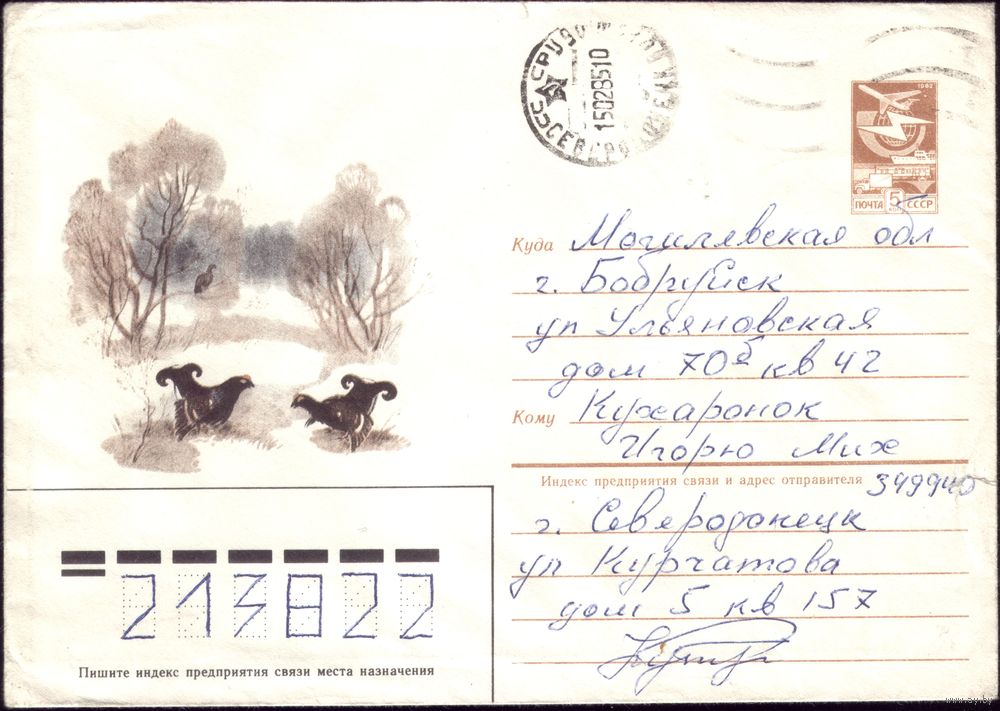 15028510
1982
ПОЧТА 5 СССР
Куда Могилевская обл
г. Бобруйск
ул Ульяновская
дом 70б кв 42
Кому Кухаронок
Игорю Мих
Индекс предприятия связи и адрес отправителя 349940
г. Северодонецк
ул Курчатова
дом 5 кв 157
213822
Пишите индекс предприятия связи места назначения
www.ay.by